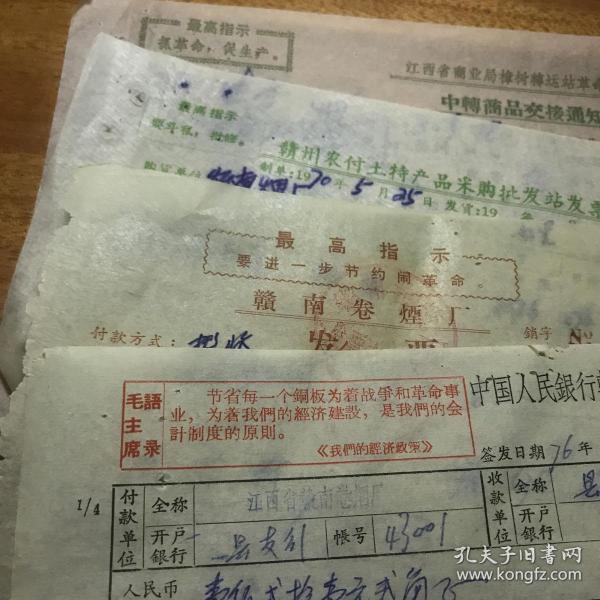 最高指示
抓革命，促生产。
江西省商业局樟树轉运站革命
中轉商品交接通知
最高指示
要斗私，批修。
赣州农付土特产品采购批发站发票
购货单位
制单：1970年5月25日 发货：19
最高指示
要进一步节约闹革命。
贛南卷煙厂
付款方式：
发 票
销字 No
毛主席語录
节省每一个銅板为着战爭和革命事
业，为着我們的經济建設，是我們的会
計制度的原則。
《我們的經济政策》
中国人民銀行
签发日期 76年
1/4
付款单位
全称
江西省贛南卷烟厂
收款单位
全称
开戶銀行
县支行
帳号
43001
开戶銀行
人民币
孔夫子旧书网
www.kongfz.com